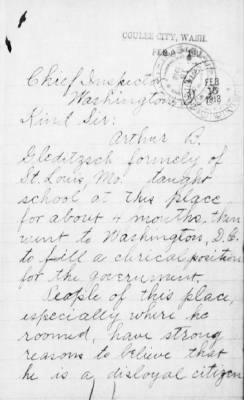 COULEE CITY, WASH.
FEB
FEB
15
1918
Chief Inspector
Washington
Kind Sir:
Arthur B.
Gleditzsch formely of
St. Louis, Mo. taught
school at this place
for about 4 months, then
went to Washington, D.C.
to fill a clerical position
for the government.
People of this place,
especially where he
roomed, have strong
reasons to believe that
he is a disloyal citizen